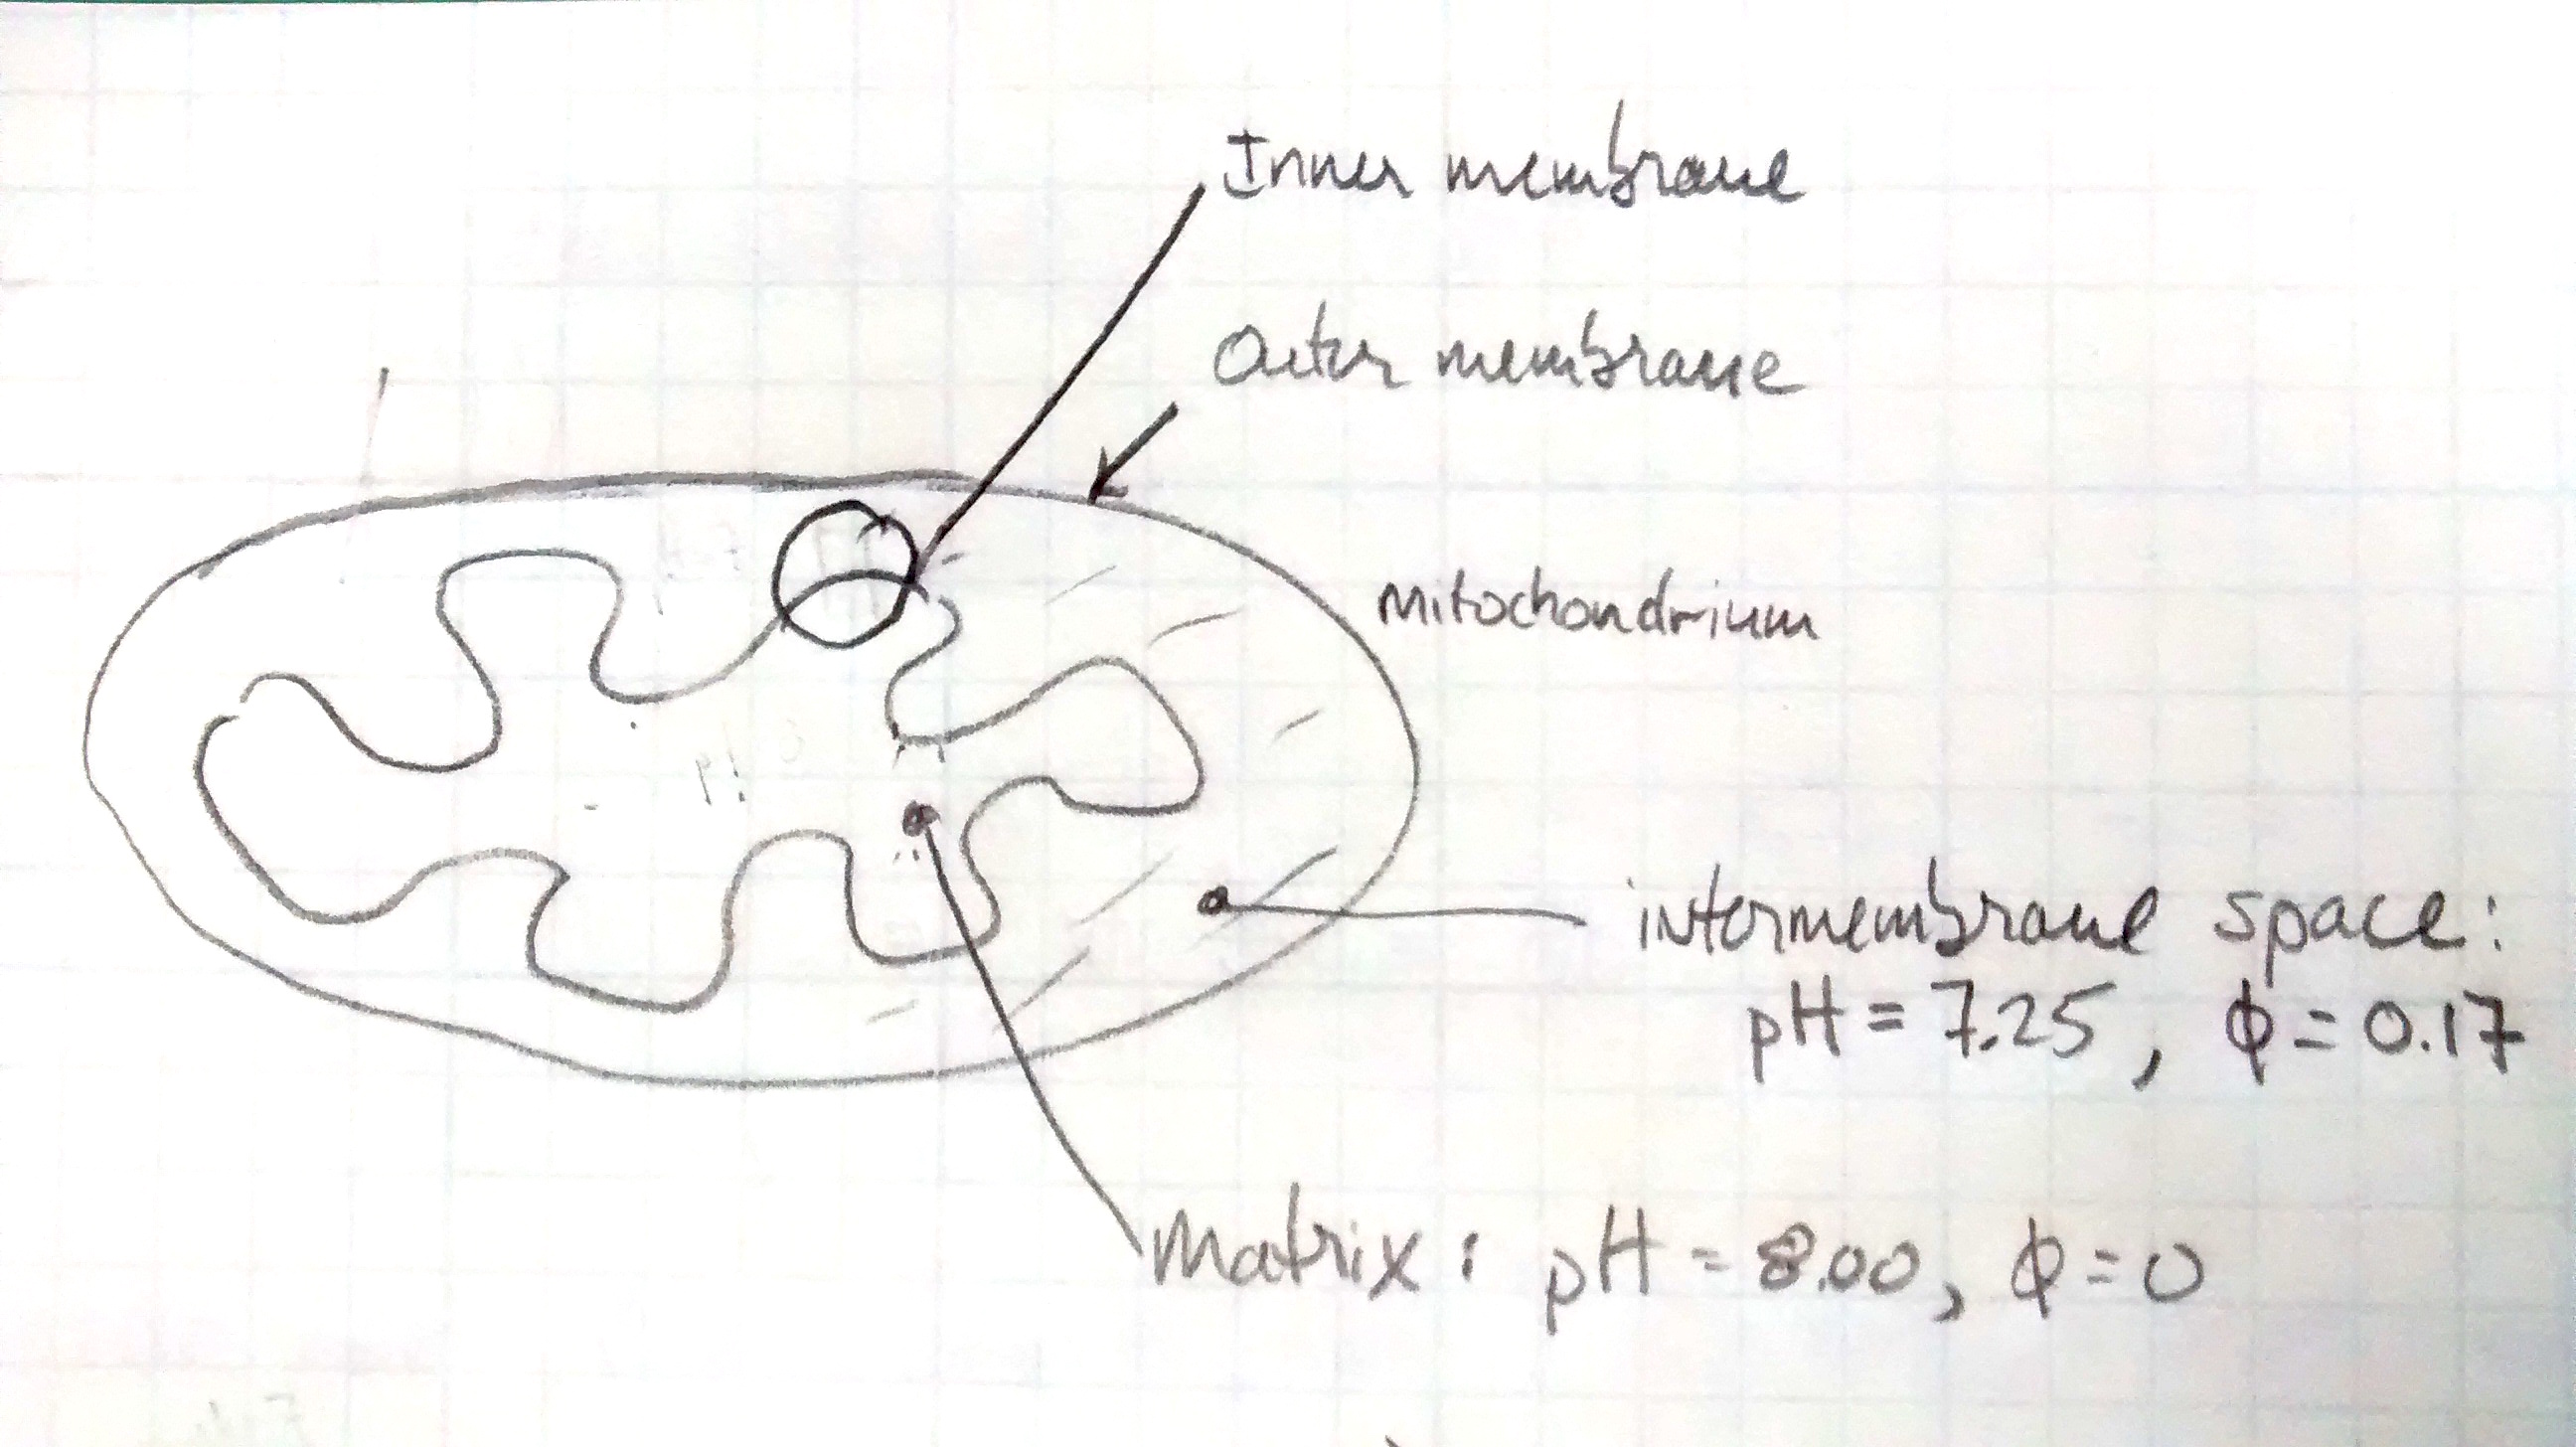 Inner membrane
Outer membrane
Mitochondrium
intermembrane space:
pH = 7.25, ϕ = 0.17
Matrix: pH = 8.00, ϕ = 0